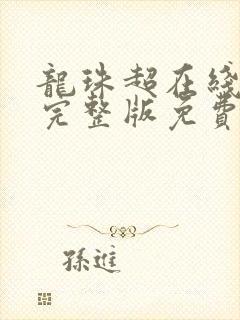 龍珠超在綫
完整版免費
孫進